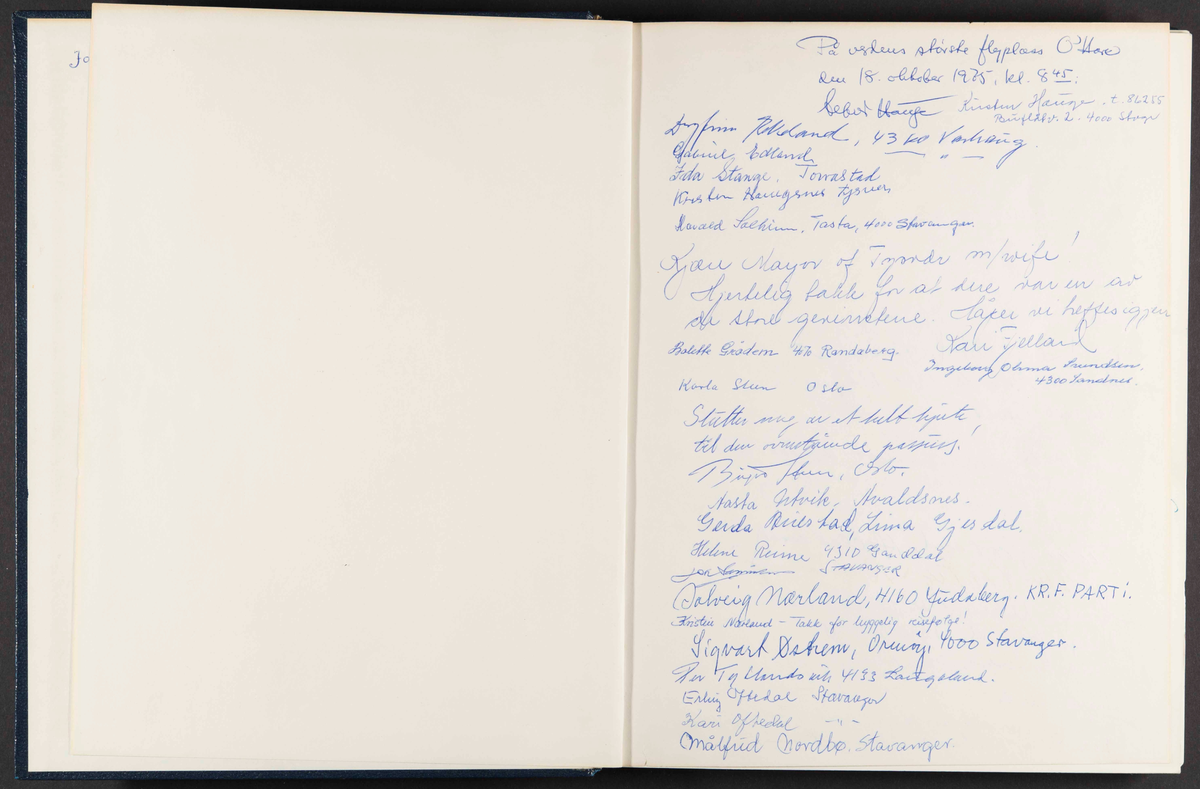 Jo
På verdens største flyplass O'Hare
den 18. oktober 1975, kl. 8 45:
Hauge Kirsten Hauge. t. 86255
2. 4000 Stvgr
Dagfinn, 4360 Varhaug.
Gabriel Edland — " —
Ida Stange. Torvastad
Kirsten Haugsnes Tysvær
Harald, Tasta, 4000 Stavanger.
Kjære Mayor of Tysvær m/wife!
Hjertelig takk for at dere var en av
de store gevinstene. Håper vi treffes igjen
Kari Fjelland
Bolette Grødem 4070 Randaberg.
Ingeborg Olima
4300 Sandnes.
Karla Steen Oslo
Støtter meg av et helt hjerte
til den ovenstående passus!
Steen, Oslo.
Aasta Utvik, Avaldsnes.
Gerda, Lima Gjesdal.
Helene Reime 4310 Ganddal
STAVANGER
Solveig Nærland, 4160 Judaberg. KR.F. PARTi.
Kristin Nærland – Takk for hyggelig reisefølge!
Sigvart Østrem, Ormøy, 4000 Stavanger.
Per 4193
Erling Oftedal Stavanger
Kari Oftedal — " —
Målfrid Nordbø. Stavanger.